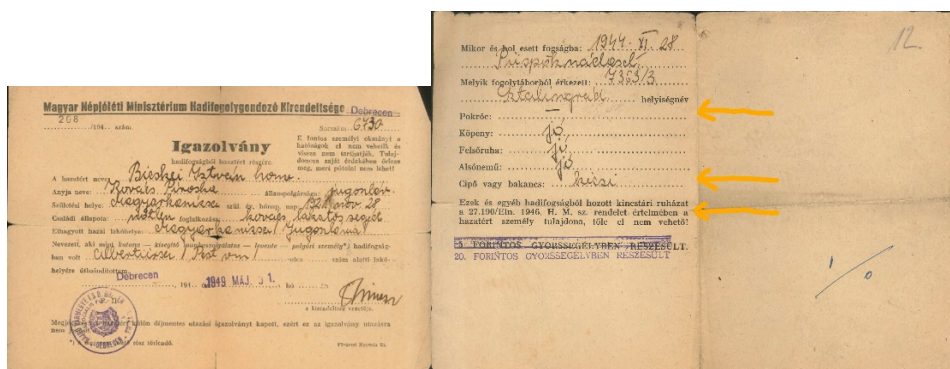 Magyar Népjóléti Minisztérium Hadifogolygondozó Kirendeltsége Debrecen
268 /194 . szám.
Sorszám: 6730
Igazolvány
hadifogságból hazatért részére.
E fontos személyi okmányt a
hatóságok el nem vehetik és
vissza nem tarthatják. Tulaj-
donosa saját érdekében őrizze
meg, mert pótolni nem lehet!
A hazatért neve: István honv.
Anyja neve: Kovács Piroska Állampolgársága: jugoszláv
Születési helye: Magyarkanizsa szül. év, hónap, nap: nov. 28
Családi állapota: nőtlen foglalkozása: kovács, lakatos segéd
Elhagyott hazai lakóhelye: Magyarkanizsa
Nevezett, aki mint honvéd — kisegítő munkaszolgálatos — levente — polgári személy*) hadifogság-
ban volt Albertirsai Pest vm. utca szám alatti lakó-
helyére útbaindítottam.
Debrecen, 194 1949 MÁJ. 31. hó -án
a kirendeltség vezetője.
Megjegyzés: hazatért külön díjmentes utazási igazolványt kapott, ezért ez az igazolvány utazásra
nem
rész törlendő.
12
Mikor és hol esett fogságba: 1944. XI. 28
Püspöknádasd
Melyik fogolytáborból érkezett: 7363/3
Sztalingrád helyiségnév
Pokróc: —
Köpeny: jó
Felsőruha: jó
Alsónemű: jó
Cipő vagy bakancs:
Ezek és egyéb hadifogságból hozott kincstári ruházat
a 27.190/Eln. 1946. H. M. sz. rendelet értelmében a
hazatért személy tulajdona, tőle el nem vehető!
5 FORINTOS GYORSSEGÉLYBEN RÉSZESÜLT.
20. FORINTOS GYORSSEGÉLYBEN RÉSZESÜLT
1/0